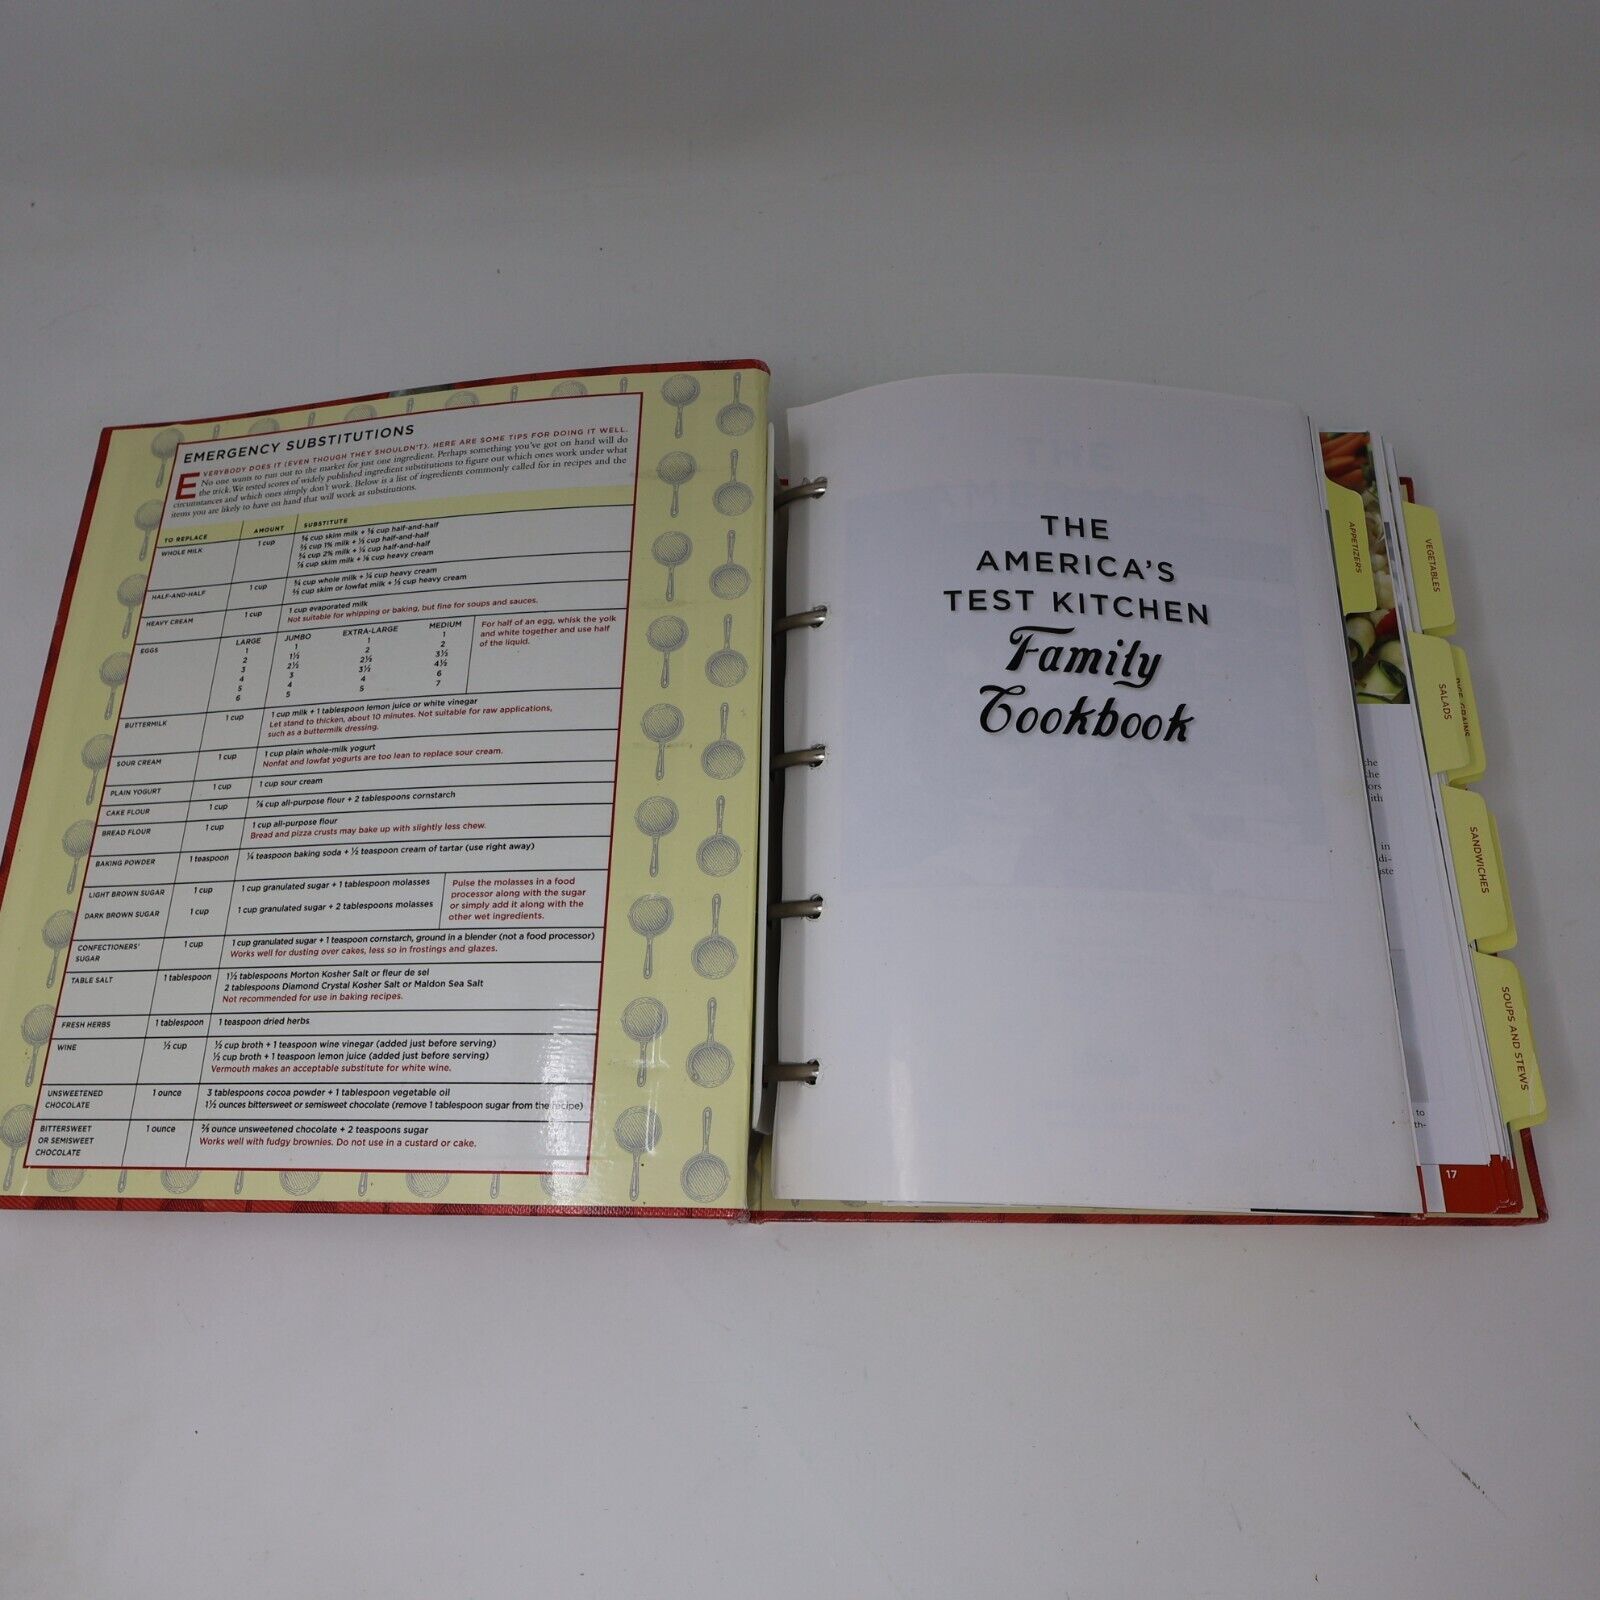 EMERGENCY SUBSTITUTIONS
EVERYBODY DOES IT (EVEN THOUGH THEY SHOULDN'T). HERE ARE SOME TIPS FOR DOING IT WELL.
No one wants to run out to the market for just one ingredient. Perhaps something you've got on hand will do
the trick. We tested scores of widely published ingredient substitutions to figure out which ones work under what
circumstances and which ones simply don't work. Below is a list of ingredients commonly called for in recipes and the
items you are likely to have on hand that will work as substitutions.
TO REPLACE AMOUNT SUBSTITUTE
WHOLE MILK 1 cup ⅝ cup skim milk + ⅜ cup half-and-half
⅔ cup 1% milk + ⅓ cup half-and-half
¾ cup 2% milk + ¼ cup half-and-half
⅞ cup skim milk + ⅛ cup heavy cream
HALF-AND-HALF 1 cup ¾ cup whole milk + ¼ cup heavy cream
⅔ cup skim or lowfat milk + ⅓ cup heavy cream
HEAVY CREAM 1 cup 1 cup evaporated milk
Not suitable for whipping or baking, but fine for soups and sauces.
EGGS LARGE JUMBO EXTRA-LARGE MEDIUM
1 1 1 1
2 1½ 2 2
3 2½ 2½ 3½
4 3 3½ 4½
5 4 4 6
6 5 5 7
For half of an egg, whisk the yolk
and white together and use half
of the liquid.
BUTTERMILK 1 cup 1 cup milk + 1 tablespoon lemon juice or white vinegar
Let stand to thicken, about 10 minutes. Not suitable for raw applications,
such as a buttermilk dressing.
SOUR CREAM 1 cup 1 cup plain whole-milk yogurt
Nonfat and lowfat yogurts are too lean to replace sour cream.
PLAIN YOGURT 1 cup 1 cup sour cream
CAKE FLOUR 1 cup ⅞ cup all-purpose flour + 2 tablespoons cornstarch
BREAD FLOUR 1 cup 1 cup all-purpose flour
Bread and pizza crusts may bake up with slightly less chew.
BAKING POWDER 1 teaspoon ¼ teaspoon baking soda + ½ teaspoon cream of tartar (use right away)
LIGHT BROWN SUGAR 1 cup 1 cup granulated sugar + 1 tablespoon molasses
DARK BROWN SUGAR 1 cup 1 cup granulated sugar + 2 tablespoons molasses
Pulse the molasses in a food
processor along with the sugar
or simply add it along with the
other wet ingredients.
CONFECTIONERS' SUGAR 1 cup 1 cup granulated sugar + 1 teaspoon cornstarch, ground in a blender (not a food processor)
Works well for dusting over cakes, less so in frostings and glazes.
TABLE SALT 1 tablespoon 1½ tablespoons Morton Kosher Salt or fleur de sel
2 tablespoons Diamond Crystal Kosher Salt or Maldon Sea Salt
Not recommended for use in baking recipes.
FRESH HERBS 1 tablespoon 1 teaspoon dried herbs
WINE ½ cup ½ cup broth + 1 teaspoon wine vinegar (added just before serving)
½ cup broth + 1 teaspoon lemon juice (added just before serving)
Vermouth makes an acceptable substitute for white wine.
UNSWEETENED CHOCOLATE 1 ounce 3 tablespoons cocoa powder + 1 tablespoon vegetable oil
1½ ounces bittersweet or semisweet chocolate (remove 1 tablespoon sugar from the recipe)
BITTERSWEET OR SEMISWEET CHOCOLATE 1 ounce ⅔ ounce unsweetened chocolate + 2 teaspoons sugar
Works well with fudgy brownies. Do not use in a custard or cake.
THE
AMERICA'S
TEST KITCHEN
Family
Cookbook
APPETIZERS
VEGETABLES
SALADS
SANDWICHES
SOUPS AND STEWS
17